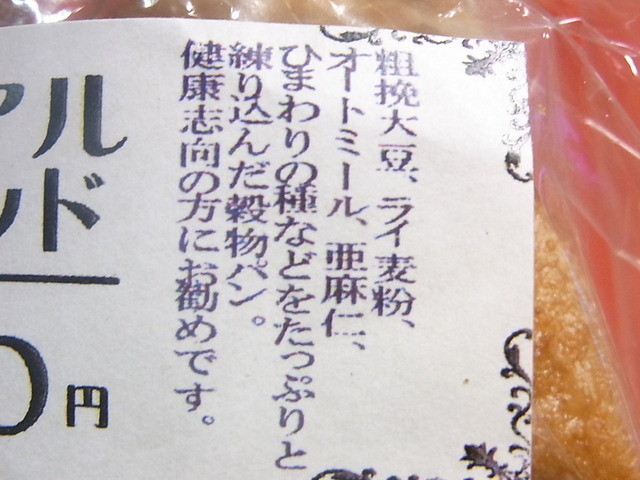 粗挽大豆、ライ麦粉、
オートミール、亜麻仁、
ひまわりの種などをたっぷりと
練り込んだ穀物パン。
健康志向の方にお勧めです。
アル
ッド
0円